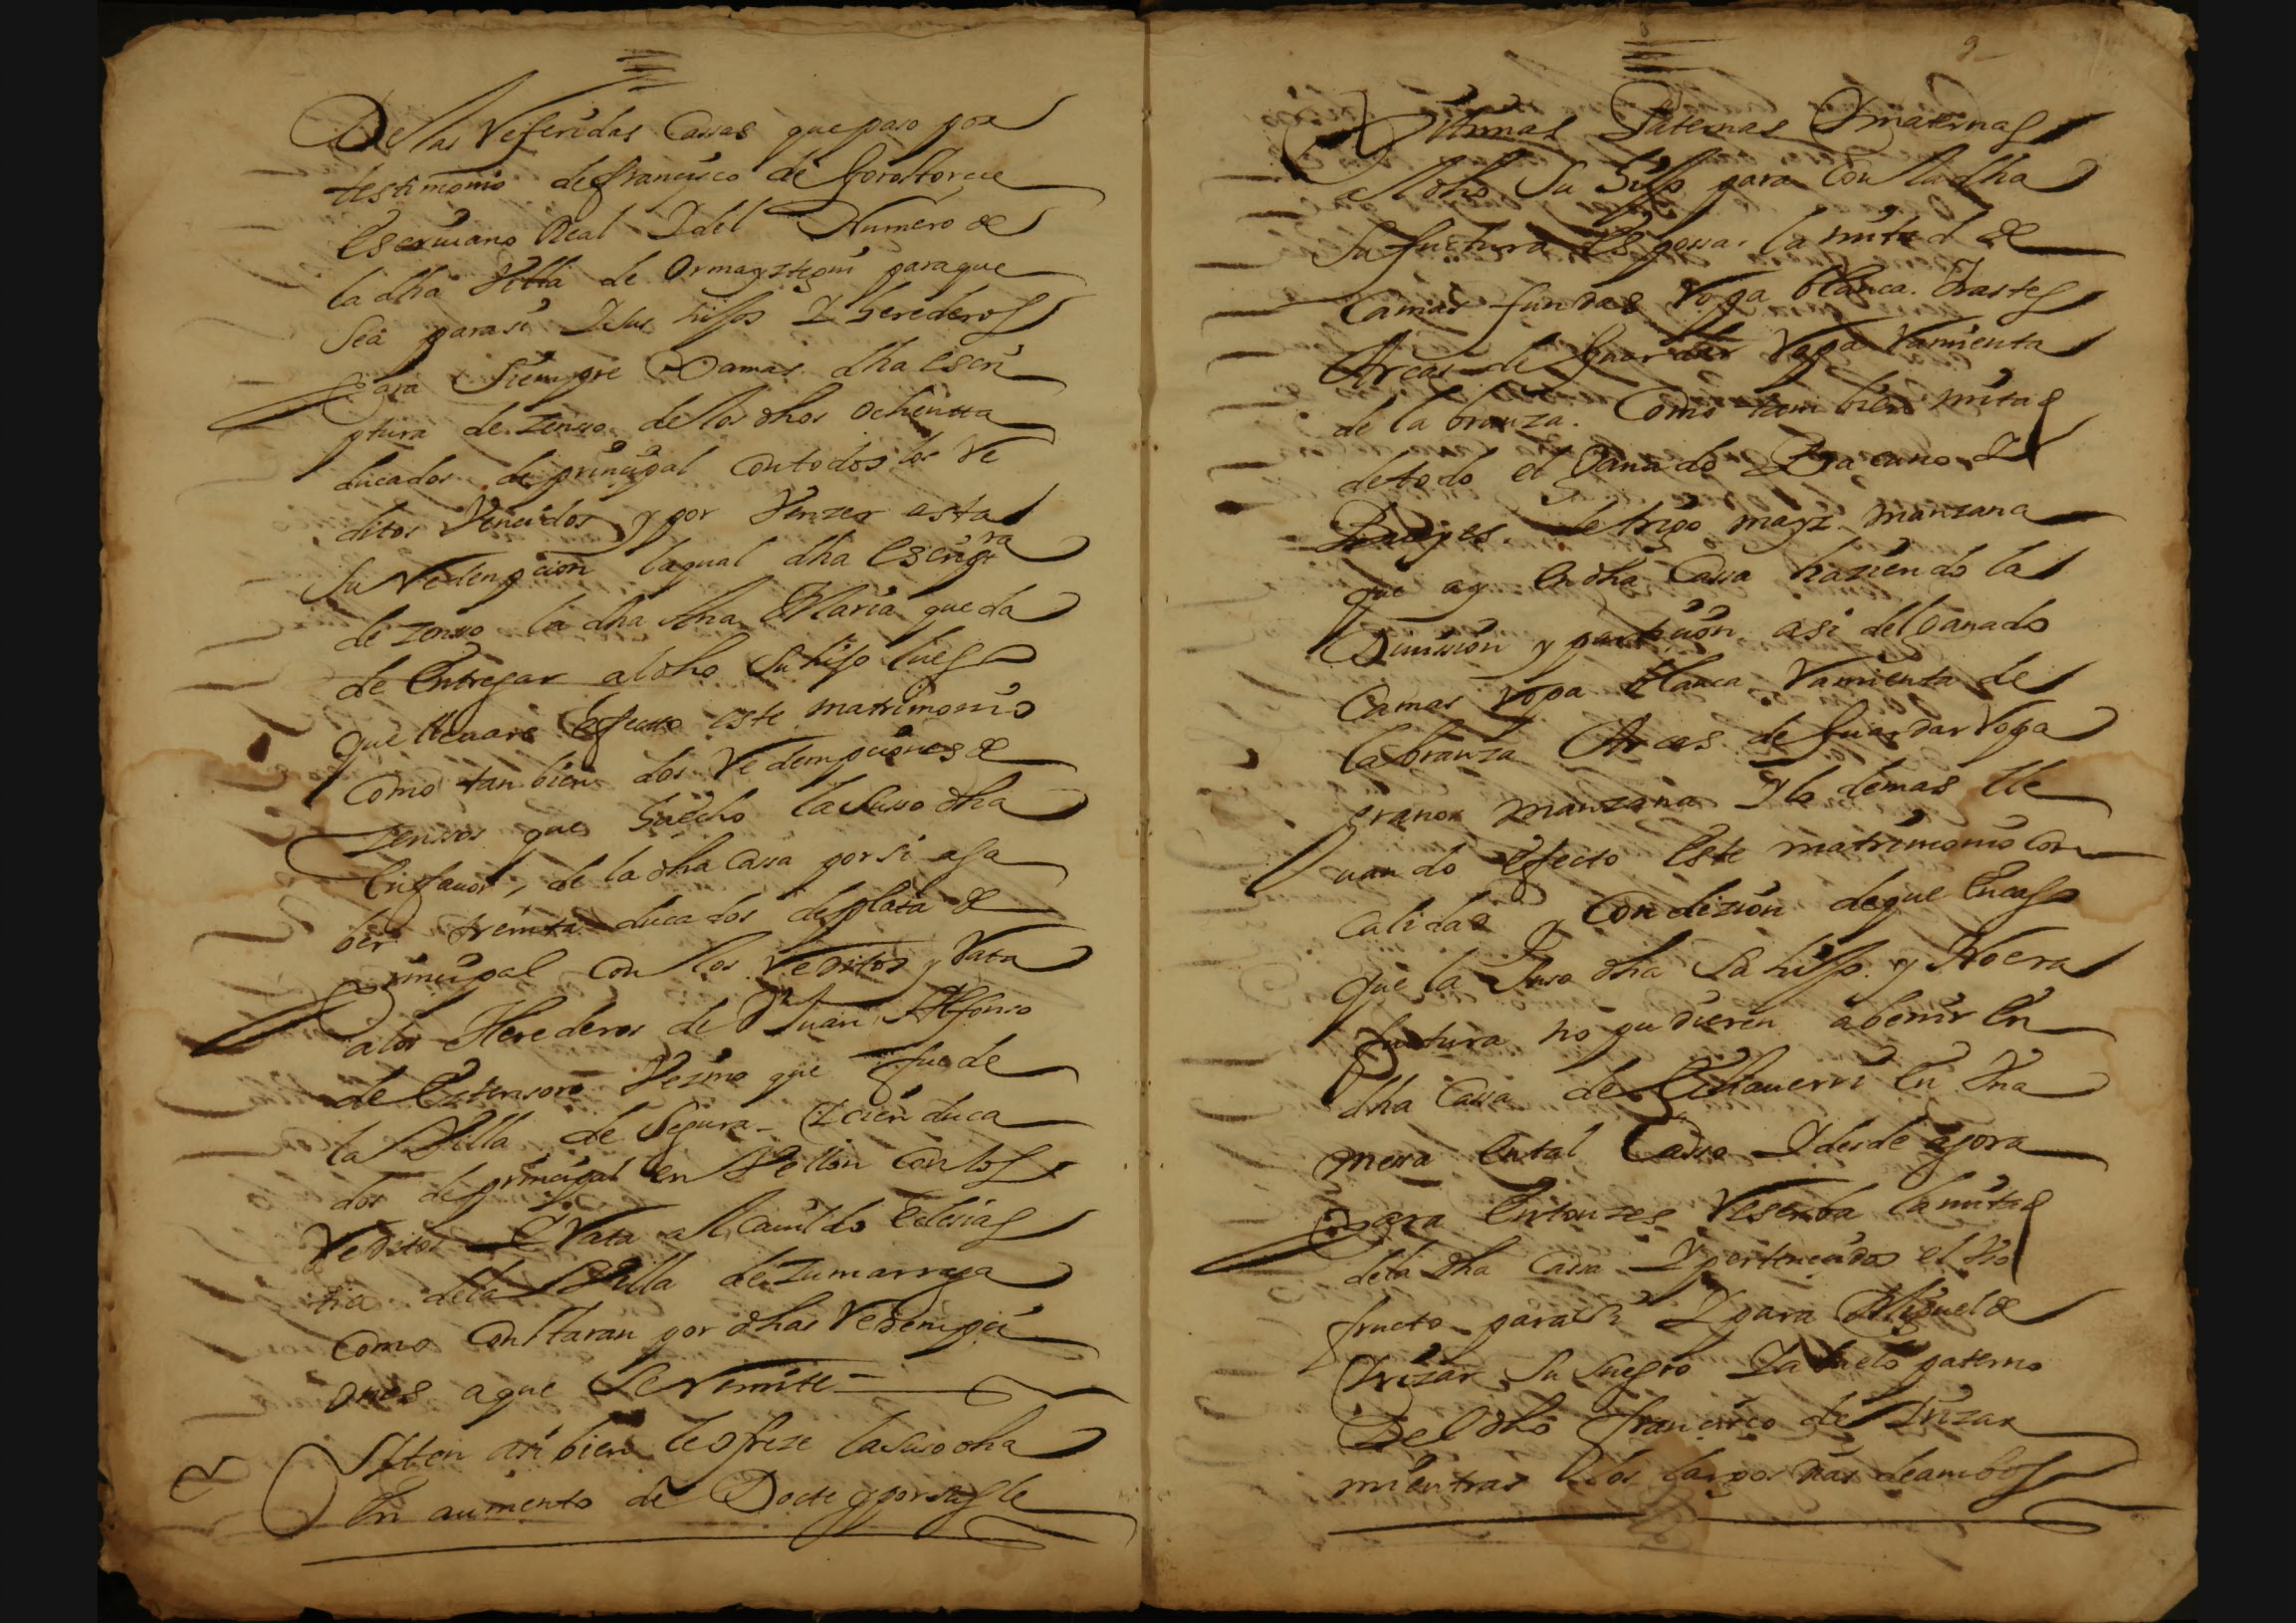 De las Referidas Cassas que paso por
testimonio de francisco de Gorostorcu
Escriuano Real Y del Numero de
la dha Villa de Ormayztegui para que
sea para si Y sus hissos Y herederos
Para siempre Jamas dha escri
ptura de zenso de los dhos ochentta
ducados de principal con todos los Re
ditos Vencidos y por Venzer asta
su Redempcion la qual dha escrip ra
de zenso la dha Ana Maria queda
de Entregar al dho su hiso luego
que lleuare efecto este matrimonio
Como tanbien dos Redempciones de
zensos que hà echo la suso dha
En fauor, de la dha Cassa por si a sa
ber treinta ducados de plata de
Principal con los Reditos y Rata
a los Herederos de Juan Alfonso
de Vezino que fue de
la Villa de Segura Y cien duca
dos de principal en Vellon con los
Reditos Y Rata al Cauildo Eclesias
tico de la Villa de Zumarraga
Como Constaran por dhas Redempci
ones a que se Remite
Itten asi bien le ofreze la suso dha
En aumento de Docte y por sus le
9
gitimas Paternas Y maternas
al dho su Hisso para con la dha
su fuctura Esposa la mitad de
Camas fundas Ropa blanca trastes
Arcas de Guardar Ropa Ramienta
de labranza. Como tambien mitad
de todo el Ganado Bacuno Y
Bueyes de trigo mayz manzana
que ay en dha Cassa haziendo la
Diuission y particion asi del Ganado
Camas ropa blanca Ramienta de
labranza Arcas de Guardar Ropa
granos manzana Y lo demas lle
uando efecto este matrimonio Con
calidad y Condizion de que en caso
que la suso dha su hisso y Nuera
fuctura no pudieren abenir en
dha Cassa de Echauerri en Vna
messa en tal Casso Y desde agora
Para Entonzes Reserba la mitad
de la dha Cassa Y pertenecidos el vso
fructo para si Y para Miguel de
Irizar su suegro Y abuelo paterno
Del dho francisco de Irizar
mientras los largos dias de ambos